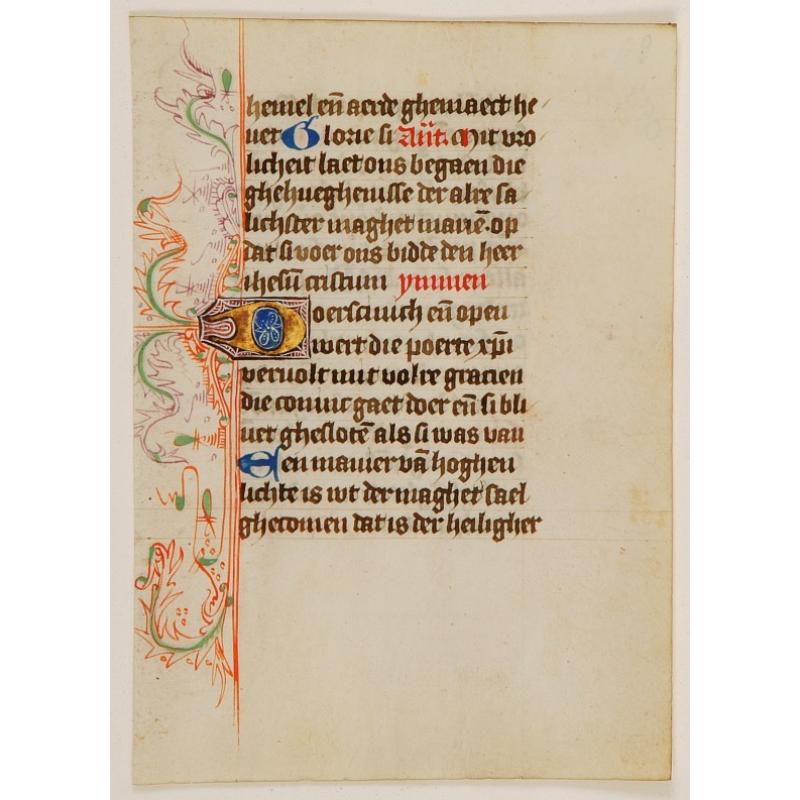 hemel eñ aerde ghemaect he
uet Glorie si Añt. Mit vro
licheit laet ons begaen die
ghehueghenisse der alre sa
lichster maghet mariē. op
dat si voer ons bidde den heer
ihesū cristum ymmen
Doerscinich eñ open
wert die poerte xp̄i
veruolt mit volre gracien
die coninc gaet doer eñ si bli
uet ghesloten̄ als si was van
Een manier vā hoghen
lichte is wt der maghet sael
ghecomen dat is der heiligher